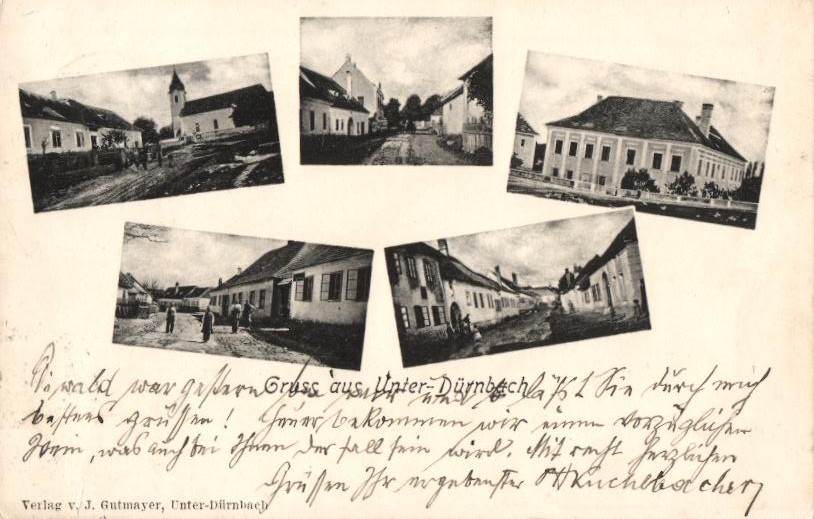 Gruss aus Unter-Dürnbach
war gestern bei mir und läßt Sie durch mich
bestens grüssen! Heuer bekommen wir einen vorzüglichen
Wein, was auch bei Ihnen der Fall sein wird. Mit recht herzlichen
Grüssen Ihr ergebenster
Verlag v. J. Gutmayer, Unter-Dürnbach